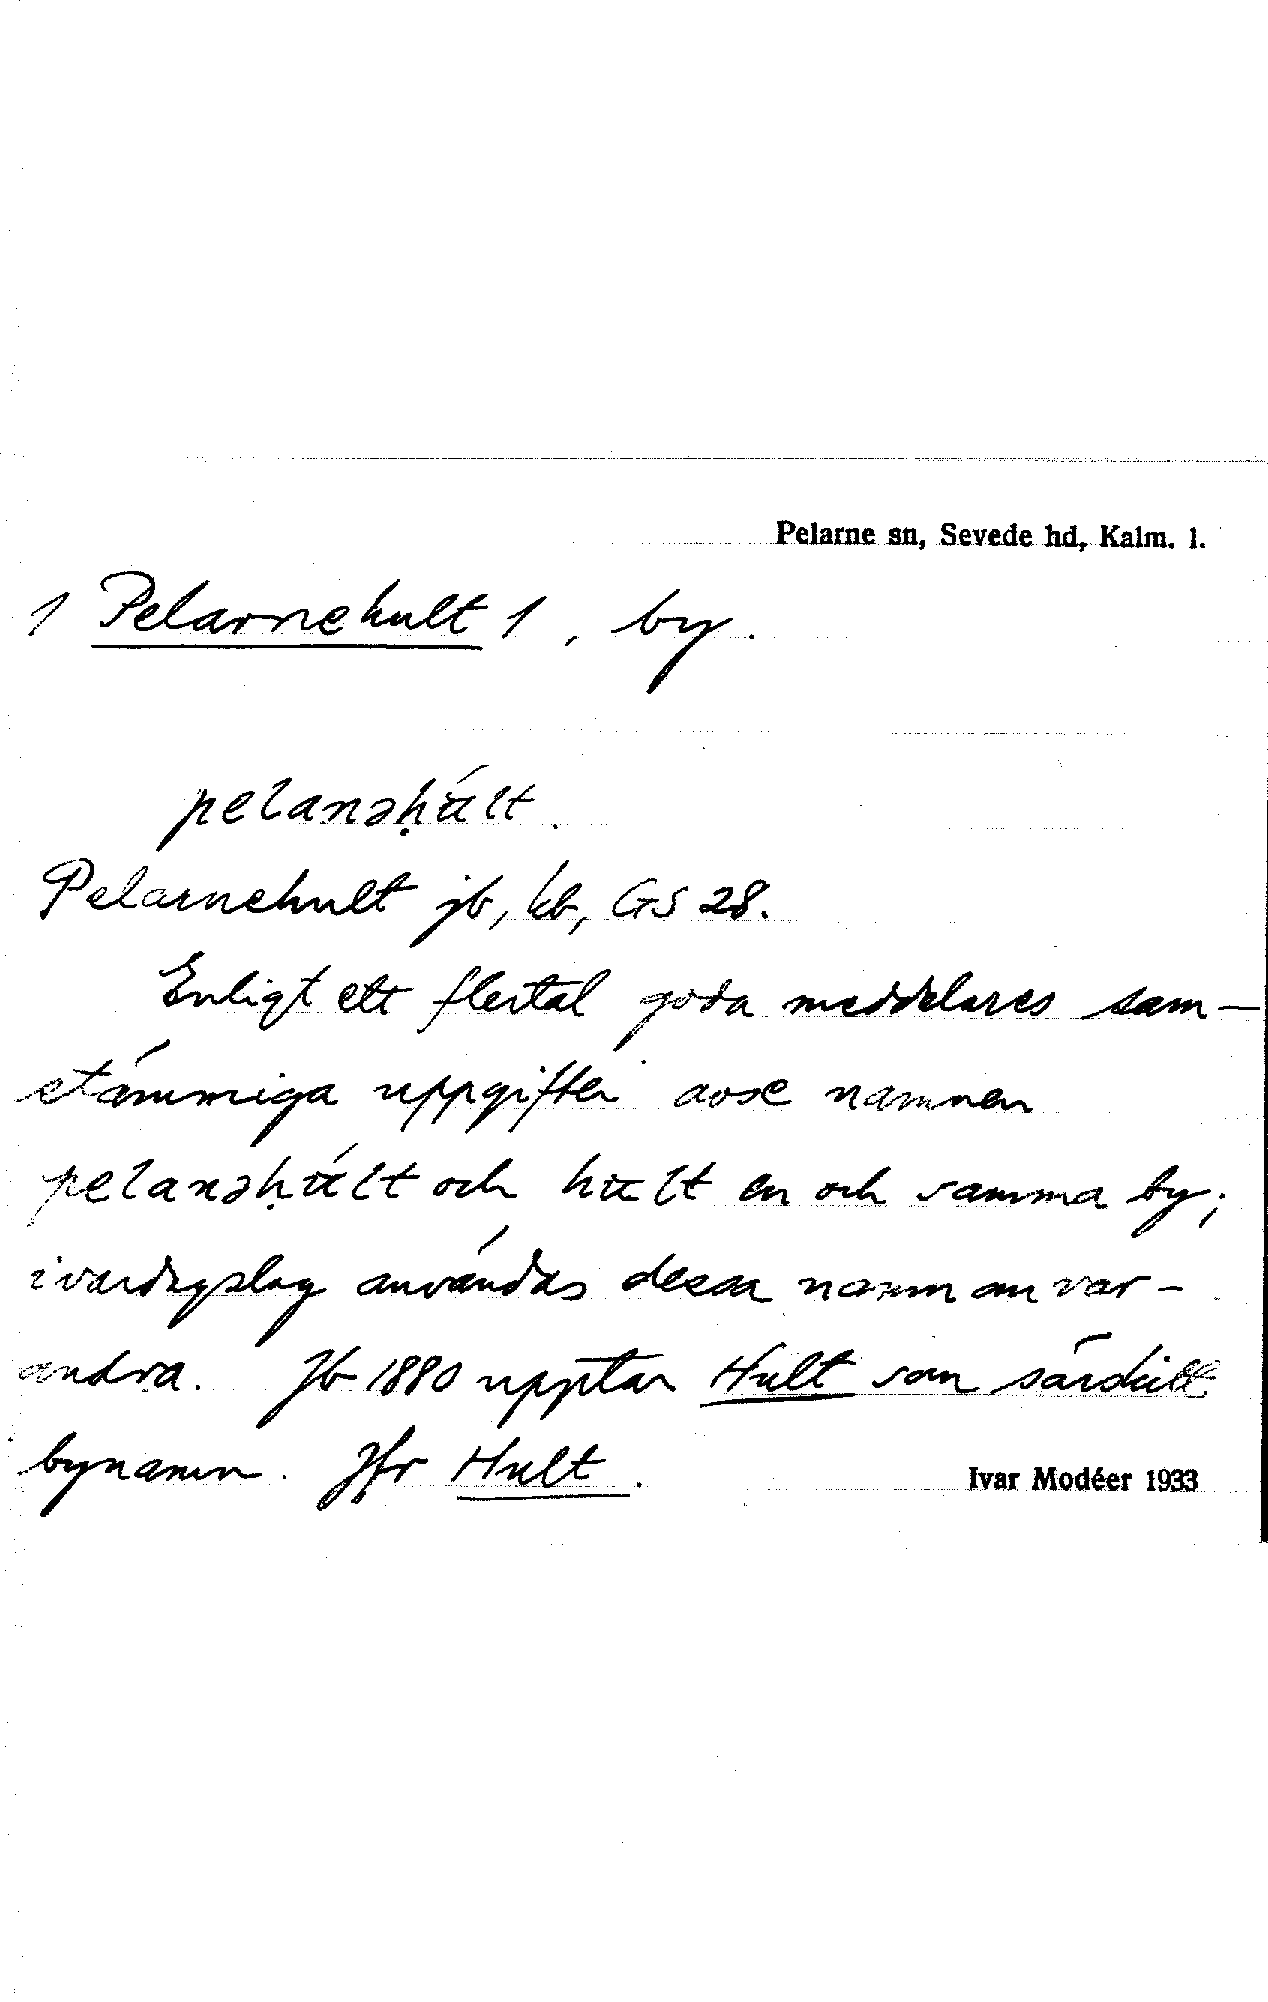 Pelarne sn, Sevede hd, Kalm. l.
1 Pelarnehult 1, by.
pelanəḥúlt.
Pelarnehult jb, kb, GS 28.
Enligt ett flertal goda meddelares sam-
stämmiga uppgifter avse namnen
pelanəḥúlt och hult en och samma by;
i vardagslag användas dessa namn om var-
andra. Jb 1880 upptar Hult som särskilt
bynamn. Jfr Hult.
Ivar Modéer 1933